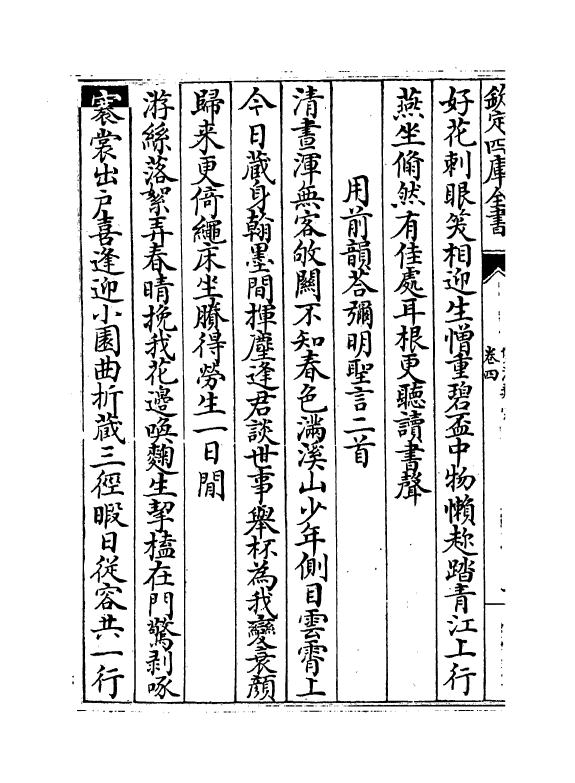 欽定四庫全書
卷四
好花刺眼笑相迎生憎重碧盃中物懶趂踏青江上行
燕坐翛然有佳處耳根更聽讀書聲
用前韻答彌明聖言二首
清晝渾無客欵關不知春色滿溪山少年側目雲霄上
今日藏身翰墨間揮麈逢君談世事舉杯為我變衰顔
歸来更倚繩床坐賸得勞生一日閒
游絲落絮弄春晴挽我花邉喚麴生挈榼在門驚剥啄
褰裳出戸喜逢迎小園曲折蔵三徑暇日從容共一行